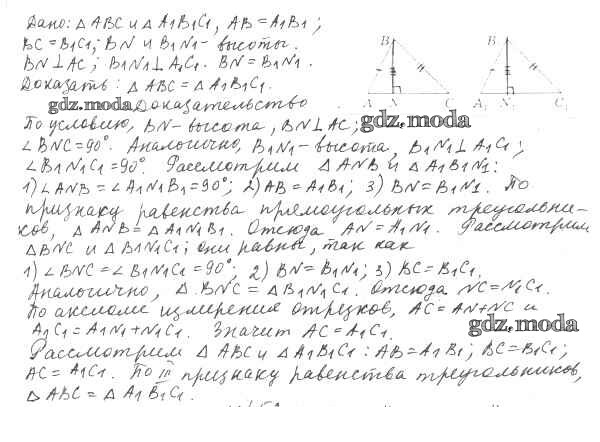 Дано: △ ABC и △ A1B1C1, AB = A1B1;
BC = B1C1; BN и B1N1 - высоты.
BN ⊥ AC; B1N1 ⊥ A1C1. BN = B1N1.
Доказать: △ ABC = △ A1B1C1.
gdz.moda Доказательство
По условию, BN - высота, BN ⊥ AC;
gdz.moda
∠BNC = 90°. Аналогично, B1N1 - высота, B1N1 ⊥ A1C1;
∠B1N1C1 = 90°. Рассмотрим △ ANB и △ A1B1N1:
1) ∠ANB = ∠A1N1B1 = 90°; 2) AB = A1B1; 3) BN = B1N1. По
признаку равенства прямоугольных треугольни-
ков, △ ANB = △ A1N1B1. Отсюда AN = A1N1. Рассмотрим
△BNC и △B1N1C1; они равны, так как
1) ∠BNC = ∠B1N1C1 = 90°; 2) BN = B1N1; 3) BC = B1C1.
Аналогично, △.BNC = △B1N1C1. Отсюда NC = N1C1.
По аксиоме измерения отрезков, AC = AN + NC и
A1C1 = A1N1 + N1C1. Значит AC = A1C1.
gdz.moda
Рассмотрим △ ABC и △ A1B1C1: AB = A1B1; BC = B1C1;
AC = A1C1. По III признаку равенства треугольников,
△ ABC = △ A1B1C1.
B
A N C
B1
A1 N1 C1